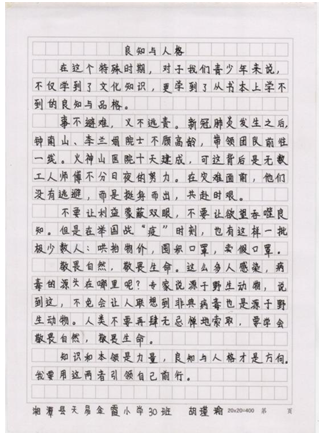 良知与人格
在这个特殊时期，对于我们青少年来说，
不仅学到了文化知识，更学到了从书本上学不
到的良知与品格。
事不避难，义不逃责。新冠肺炎发生之后，
钟南山、李兰娟院士不顾高龄，带领团队前往
一线。火神山医院十天建成，可这背后是无数
工人师傅不分日夜的努力。在灾难面前，他们
没有逃避，而是挺身而出，共赴时艰。
不要让利益蒙蔽双眼，不要让欲望吞噬良
知。但是在举国战“疫”时刻，也有这样一批
极少数人：哄抬物价，囤积口罩，卖假口罩。
敬畏自然，敬畏生命。这么多人感染，病
毒的源头在哪里呢？专家说源于野生动物，说
到这，不免会让人联想到非典病毒也是源于野
生动物。人类不要再肆无忌惮地索取，要学会
敬畏自然，敬畏生命。
知识和本领是力量，良知与人格才是方向。
我要用这两者引领自己前行。
湘潭县天易金霞小学30班 胡瑾瑜 20x20=400 第 页